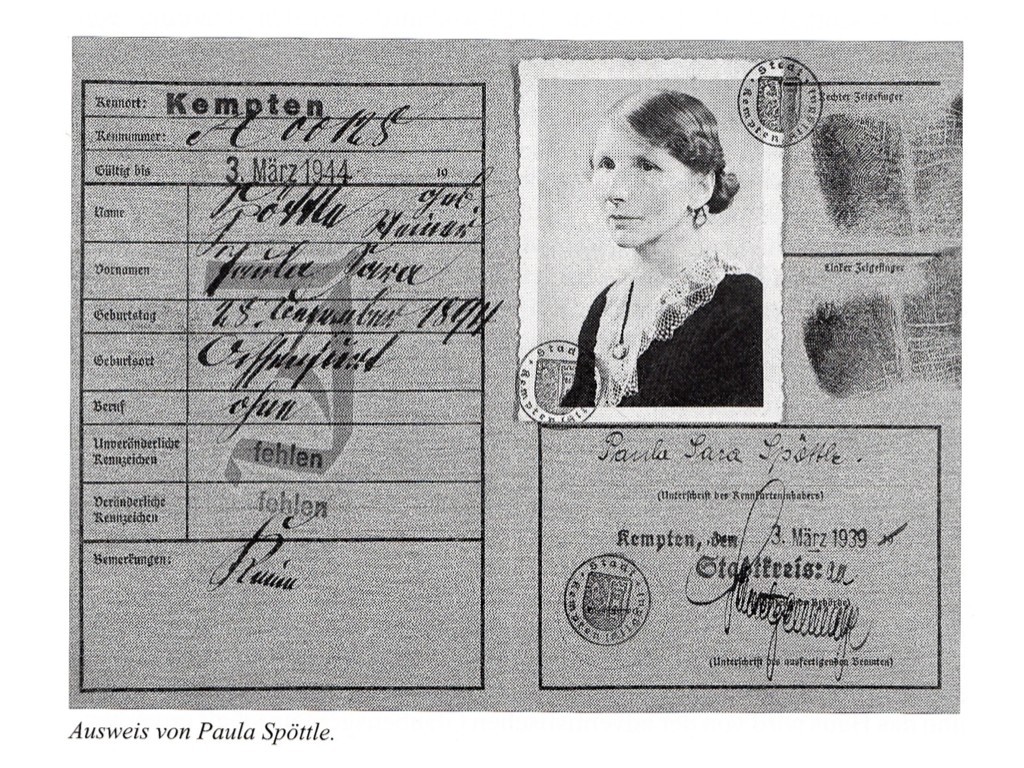 Kennort: Kempten
Kennummer: A 00125
Gültig bis 3. März 1944 19
Name Spöttle geb.
Vornamen Paula Sara
Geburtstag 25. Dezember 1894
Geburtsort
Beruf ohne
Unveränderliche
Kennzeichen fehlen
Veränderliche
Kennzeichen fehlen
Bemerkungen: Keine
J
Stadt Kempten (Allgäu)
Rechter Zeigefinger
Linker Zeigefinger
Stadt Kempten (Allgäu)
Paula Sara Spöttle.
(Unterschrift des Kennkarteninhabers)
Kempten, den 3. März 1939
Stadtkreis:
Stadt Kempten (Allgäu)
(Unterschrift des ausfertigenden Beamten)
Ausweis von Paula Spöttle.